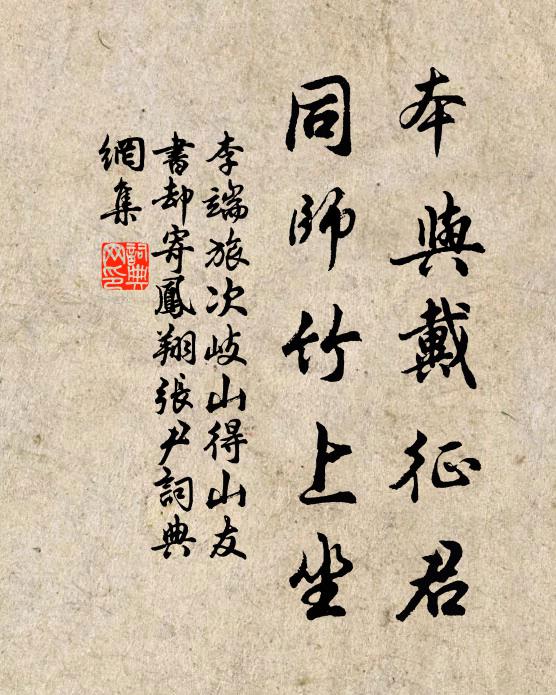 本與戴征君
同師竹上坐
李端旅次岐山得山友
書却寄鳳翔張尹詞典
網集
詞典網印